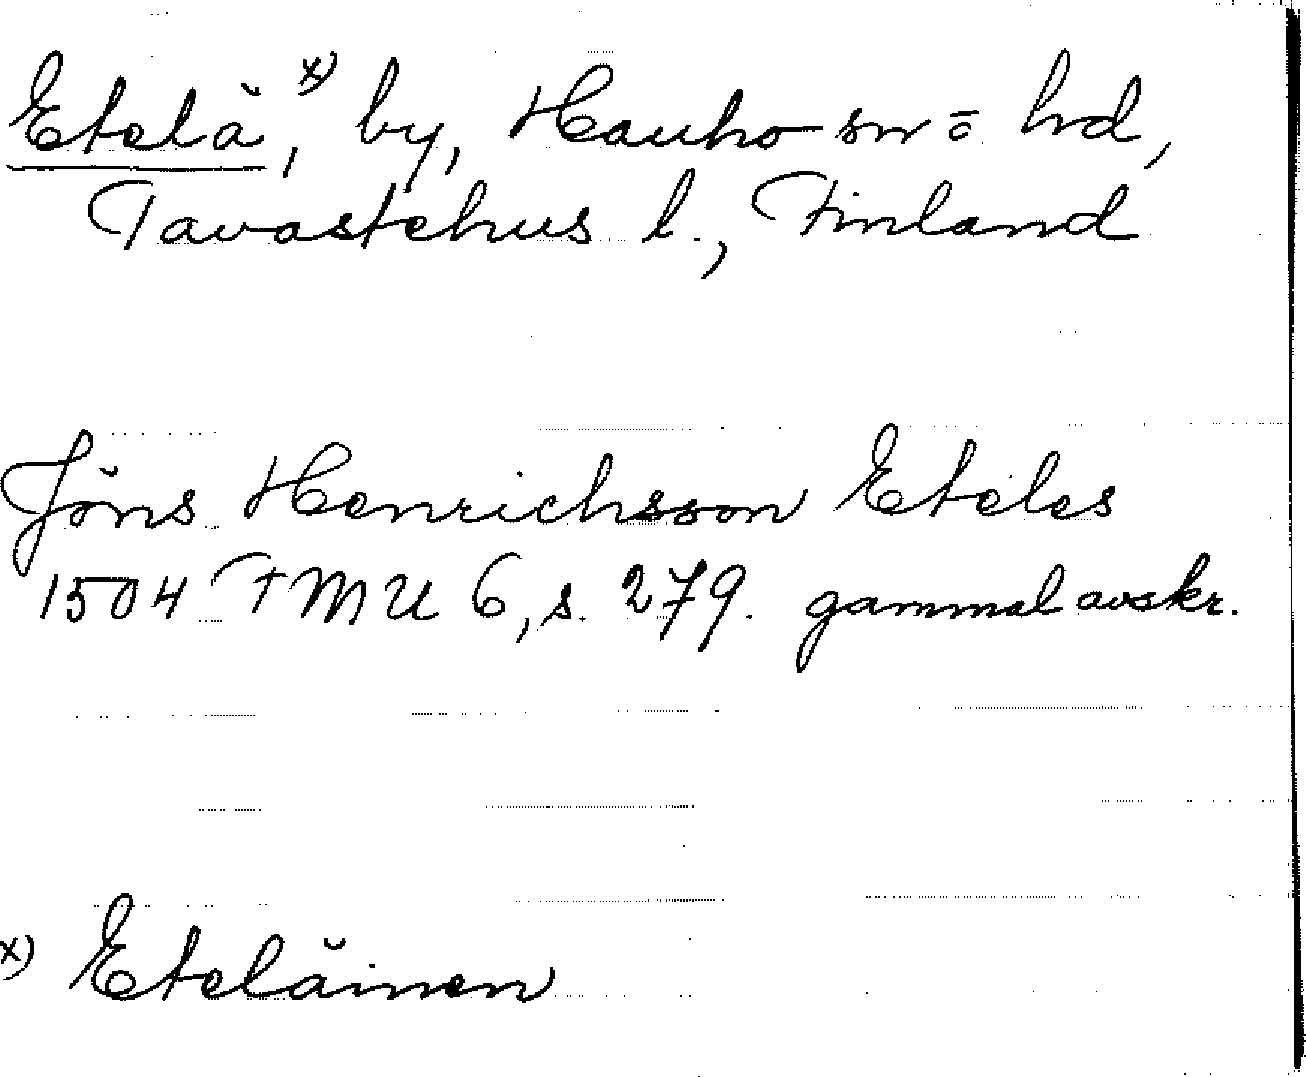 Etelä,ˣ⁾ by, Hauho sn o hd,
Tavastehus l., Finland
Jöns Henrichsson Eteles
1504 FMU 6, s. 279. gammal avskr.
x) Eteläinen